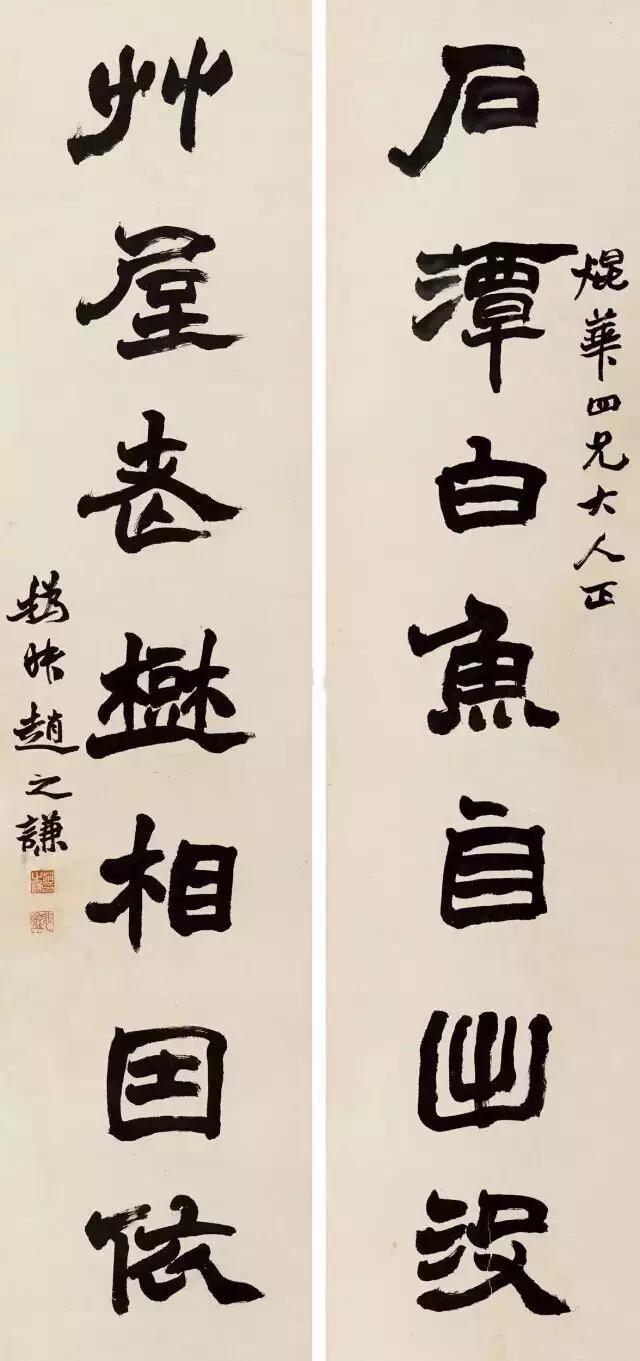 焜華四兄大人正
石潭白魚自出沒
艸屋相因依
撝叔趙之謙